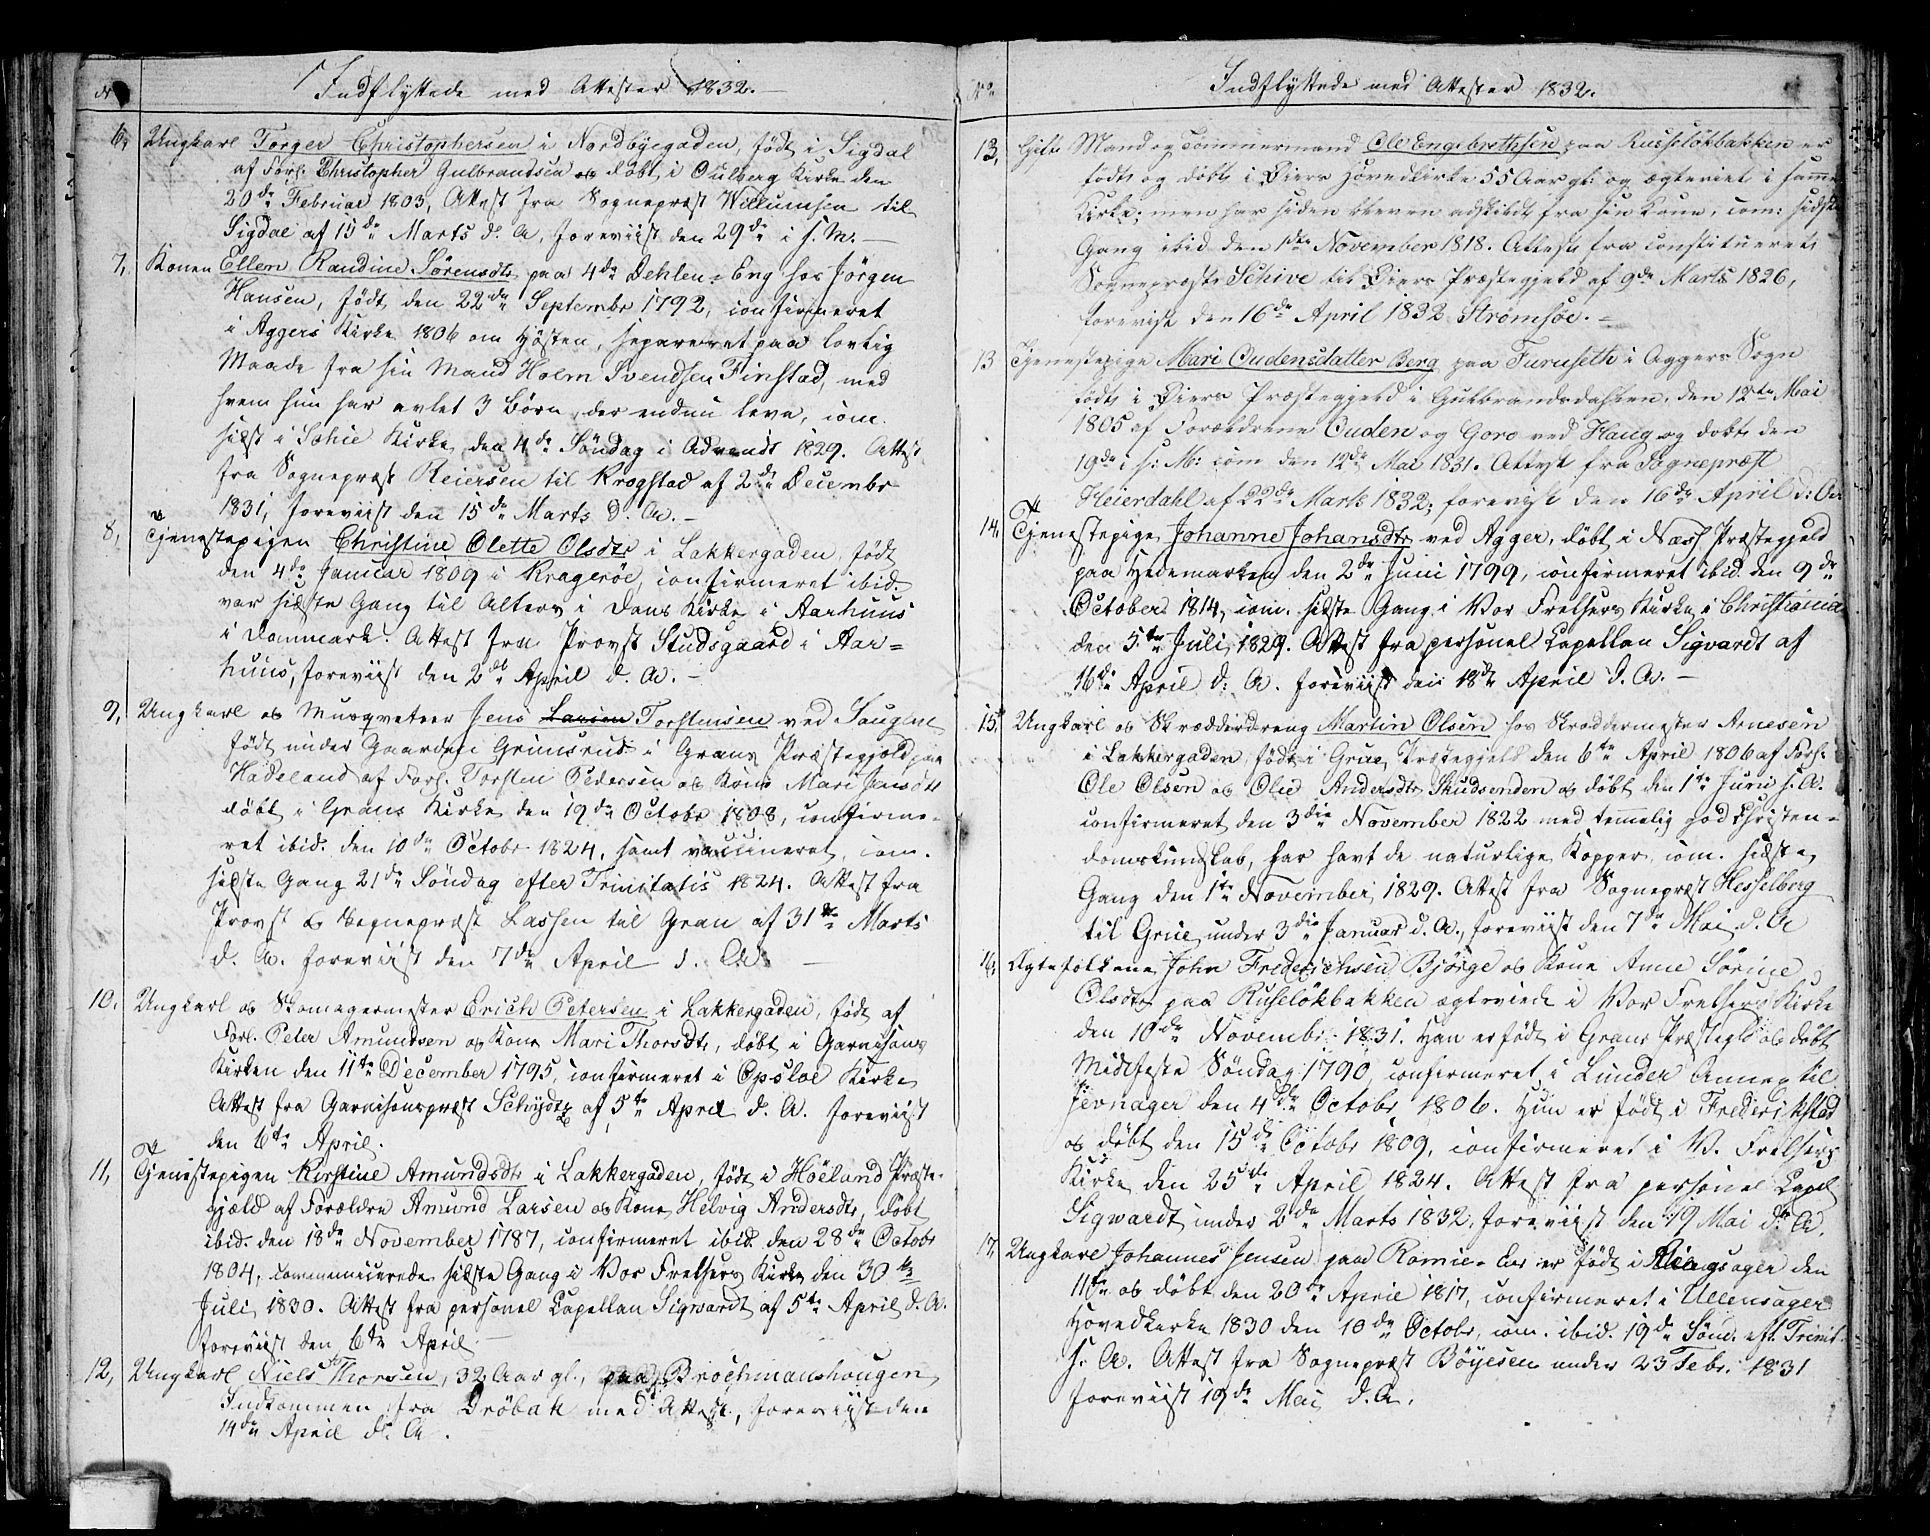 No
Indflyttede med Attester 1832.
6, Ungkarl Torger Christophersen i Nordbyegaden, født i Sigdal
af Forl. Christopher Gulbrandsen og døbt i Kirke den
20de Februar 1803, Attest fra Sognepræst Willumsen til
Sigdal af 15de Marts d. A. foreviist den 29de i s. M. —
7, Konen Ellen Randine Sørensdtr paa 4de Dehlen-Eng hos Jørgen
Hansen, født den 22de Septembr 1792, confirmeret
i Aggers Kirke 1806 om Høsten, separeret paa lovlig
Maade fra sin Mand Holm Svendsen Finstad, med
hvem hun har avlet 3 Børn, der endnu leve, com.
sidst i Kirke den 4de Søndag i Advendt 1829. Attest
fra Sognepræst Reiersen til Krogstad af 2den Decembr
1831, foreviist den 15de Marts d. A. —
8, Tjenestepigen Christine Olette Olsdtr i Lakkergaden, født
den 4de Januar 1809 i Kragerøe, confirmeret ibid.
var sidste Gang til Alters i Doms Kirke i Aarhuus
i Danmark. Attest fra Provst Studsgaard i Aar=
huus, foreviist den 2den April d. A. —
9, Ungkarl og Musqveteer Jens Larsen Torstensen ved Saugene
født under Gaarden Grimsrud i Grans Præstegjeld paa
Hadeland af Forl. Torsten Pedersen og Kone Mari Jensdtr
døbt i Grans Kirke den 19de Octobr 1808, confirme-
ret ibid. den 10de Octobr 1824, samt vaccineret, com.
sidste Gang 21de Søndag efter Trinitatis 1824. Attest fra
Provst og Sognepræst Lassen til Gran af 31te Marts
d. A. foreviist den 7de April d. A. —
10, Ungkarl og Skomagermester Erich Petersen i Lakkergaden, født af
Forl. Peter Amundsen og Kone Mari Thorsdtr, døbt i Garnisons
Kirken den 11te December 1795, confirmeret i Opsloe Kirke
Attest fra Garnisonspræst Schydtz af 5te April d. A. foreviist
den 6te April.
11, Tjenestepigen Kirstine Amundsdtr i Lakkergaden, født i Høeland Præste-
gjeld af Forældre Amund Larsen og Kone Helvig Andersdtr, døbt
ibid. den 18de November 1787, confirmeret ibid. den 28de Octobr
1804, communicerede sidste Gang i Vor Frelsers Kirke den 30te
Juli 1830. Attest fra personel Capellan Sigwardt af 5te April d. A.
foreviist den 6te April. —
12, Ungkarl Niels Thorsen, 32 Aar gl., paa Brochmanshougen
Indkommen fra Drøbak med Attest, foreviist den
14de April d. A.
No
Indflyttede med Attester 1832.
13, Gift Mand og Tømmermand Ole Engebrethsen paa Russeløkbakken er
født og døbt i Øiers Hovedkirke 55 Aar gl: og ægteviet i samme
Kirke; men har siden bleven adskildt fra sin Kone, com: sidste
Gang ibid den 1ste November 1818. Attest fra constitueret
Sognepræst Schive til Øiers Præstegjeld af 9de Marts 1826,
forevist den 16de April 1832 Strømsøe. —
13 Tjenestepige Mari Oudensdatter Berg paa Furuseth i Aggers Sogn
født i Øiers Præstegjeld i Gulbrandsdahlen, den 12te Mai
1805 af Forældrene Ouden og Goro ved Haug og døbt den
19de i s: M: com den 12de Mai 1831. Attest fra Sognepræst
Heierdahl af 22de Marts 1832; forevist den 16de April d: A
14, Tjenestepige Johanne Johansdtr ved Agger, døbt i Næss Præstegjeld
paa Hedemarken den 2de Juni 1799, confirmeret ibid. den 9de
October 1814, com. sidste Gang i Vor Frelsers Kirke i Christiania
den 5te Juli 1829. Attest fra personel Capellan Sigvardt af
16de April d: A. foreviist den 18de April d. A. —
15, Ungkarl og Skrædderdreng Martin Olsen hos Skræddermester Arnesen
i Lakkergaden, født i Grue Præstegjeld den 6te April 1806 af Forl.
Ole Olsen og Olie Andersdtr Skudsenden og døbt den 1te Juni s. A.
confirmeret den 3die November 1822 med temmelig god Christen-
domskundskab, har havt de naturlige Kopper, com. sidste
Gang den 1te November 1829. Attest fra Sognepræst Hesselberg
til Grue under 3die Januar d. A., foreviist den 7de Mai d. A
16, Ægtefolkene John Frederichsen Bjørge og Kone Anne Sørine
Olsdtr paa Ruseløkbakken ægteviede i Vor Frelsers Kirke
den 10de Novembr 1831. Han er født i Grans Præstegld og døbt
Midfaste Søndag 1790, confirmeret i Lunder Annex til
Jevnager den 4de Octobr 1806. Hun er født i Frederichstad
og døbt den 15de Octobr 1809, confirmeret i V. Frelsers
Kirke den 25de April 1824. Attest fra personel Capel
Sigwardt under 2de Marts 1832, foreviist den 19 Mai d. A.
17, Ungkarl Johannes Jensen paa Romie- er født i Ullensager den
11te og døbt den 20de April 1817, confirmeret i Ullensager
Hovedkirke 1830 den 10de Octobr, com. ibid. 19de Sønd. eft. Trinit.
s. A. Attest fra Sognepræst Bøyesen under 23 Febr. 1831
foreviist 19de Mai d. A.